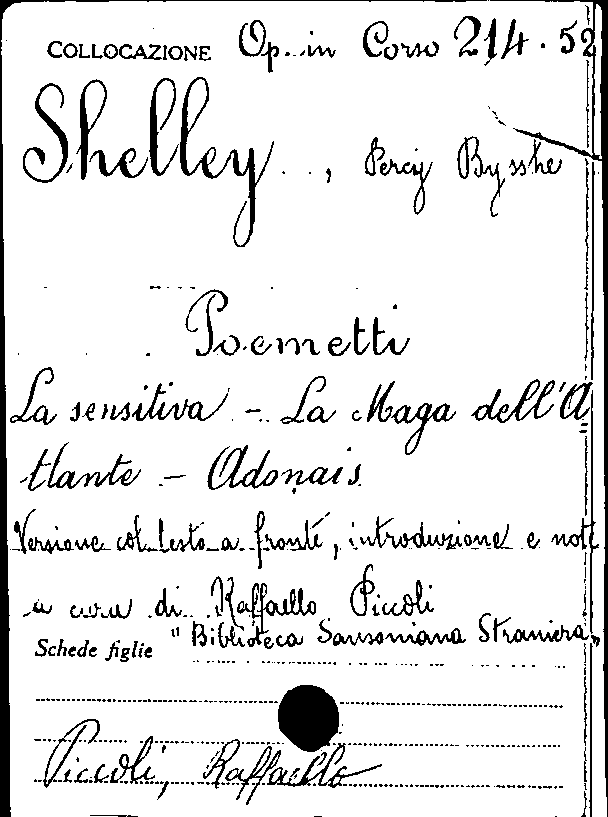 COLLOCAZIONE Op. in Corso 214.52
Shelley, Percy Bysshe
Poemetti
La sensitiva - La Maga dell'A
tlante - Adonais
Versione col testo a fronte, introduzione e note
a cura di Raffaello Piccoli
Schede figlie "Biblioteca Sansoniana Straniera"
Piccoli, Raffaello